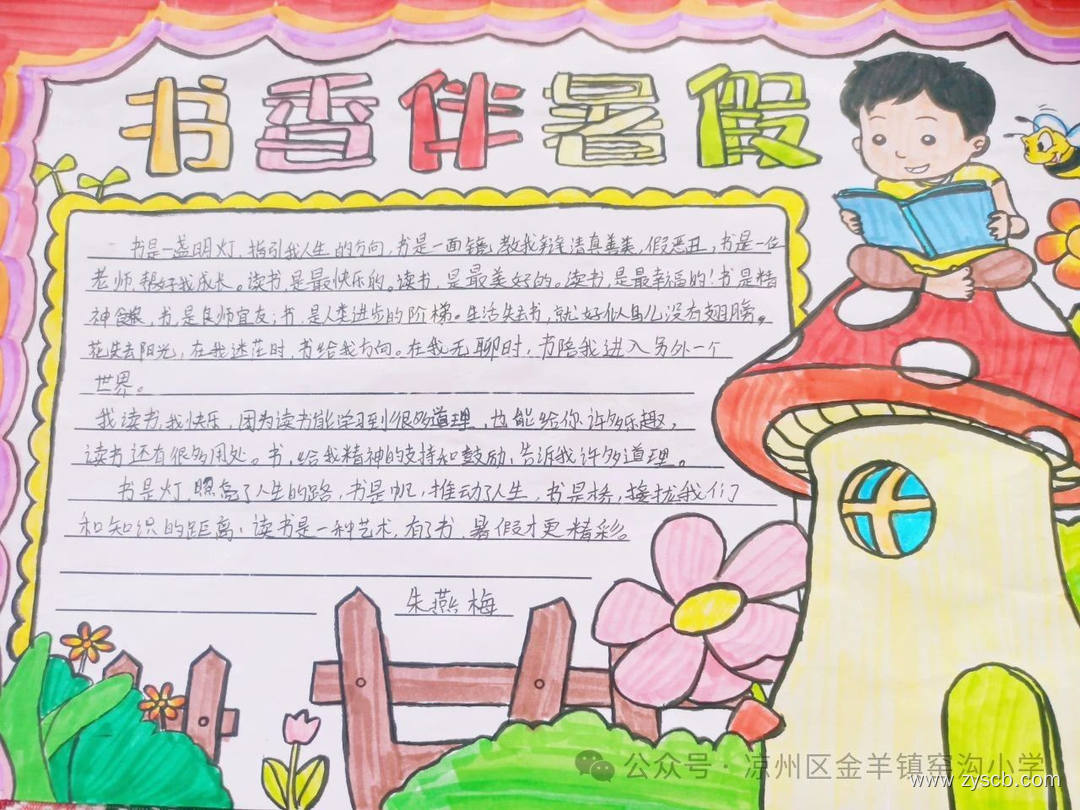 书香伴暑假
书是一盏明灯,指引我人生的方向,书是一面镜,教我辨清真善美,假恶丑,书是一位
老师,帮好我成长。读书,是最快乐的。读书,是最美好的。读书,是最幸福的!书是精
神食粮,书,是良师宜友;书,是人类进步的阶梯。生活失去书,就好似鸟儿没有翅膀,
花失去阳光,在我迷茫时,书给我方向。在我无聊时,书陪我进入另外一个
世界。
我读书,我快乐,因为读书能学习到很多道理,也能给你许多乐趣,
读书还有很多用处。书,给我精神的支持和鼓励,告诉我许多道理。
书是灯,照亮了人生的路,书是帆,推动了人生,书是桥,接拢我们
和知识的距离,读书是一种艺术,有了书,暑假才更精彩。
朱燕梅
公众号·凉州区金羊镇窑沟小学
www.zyscb.com